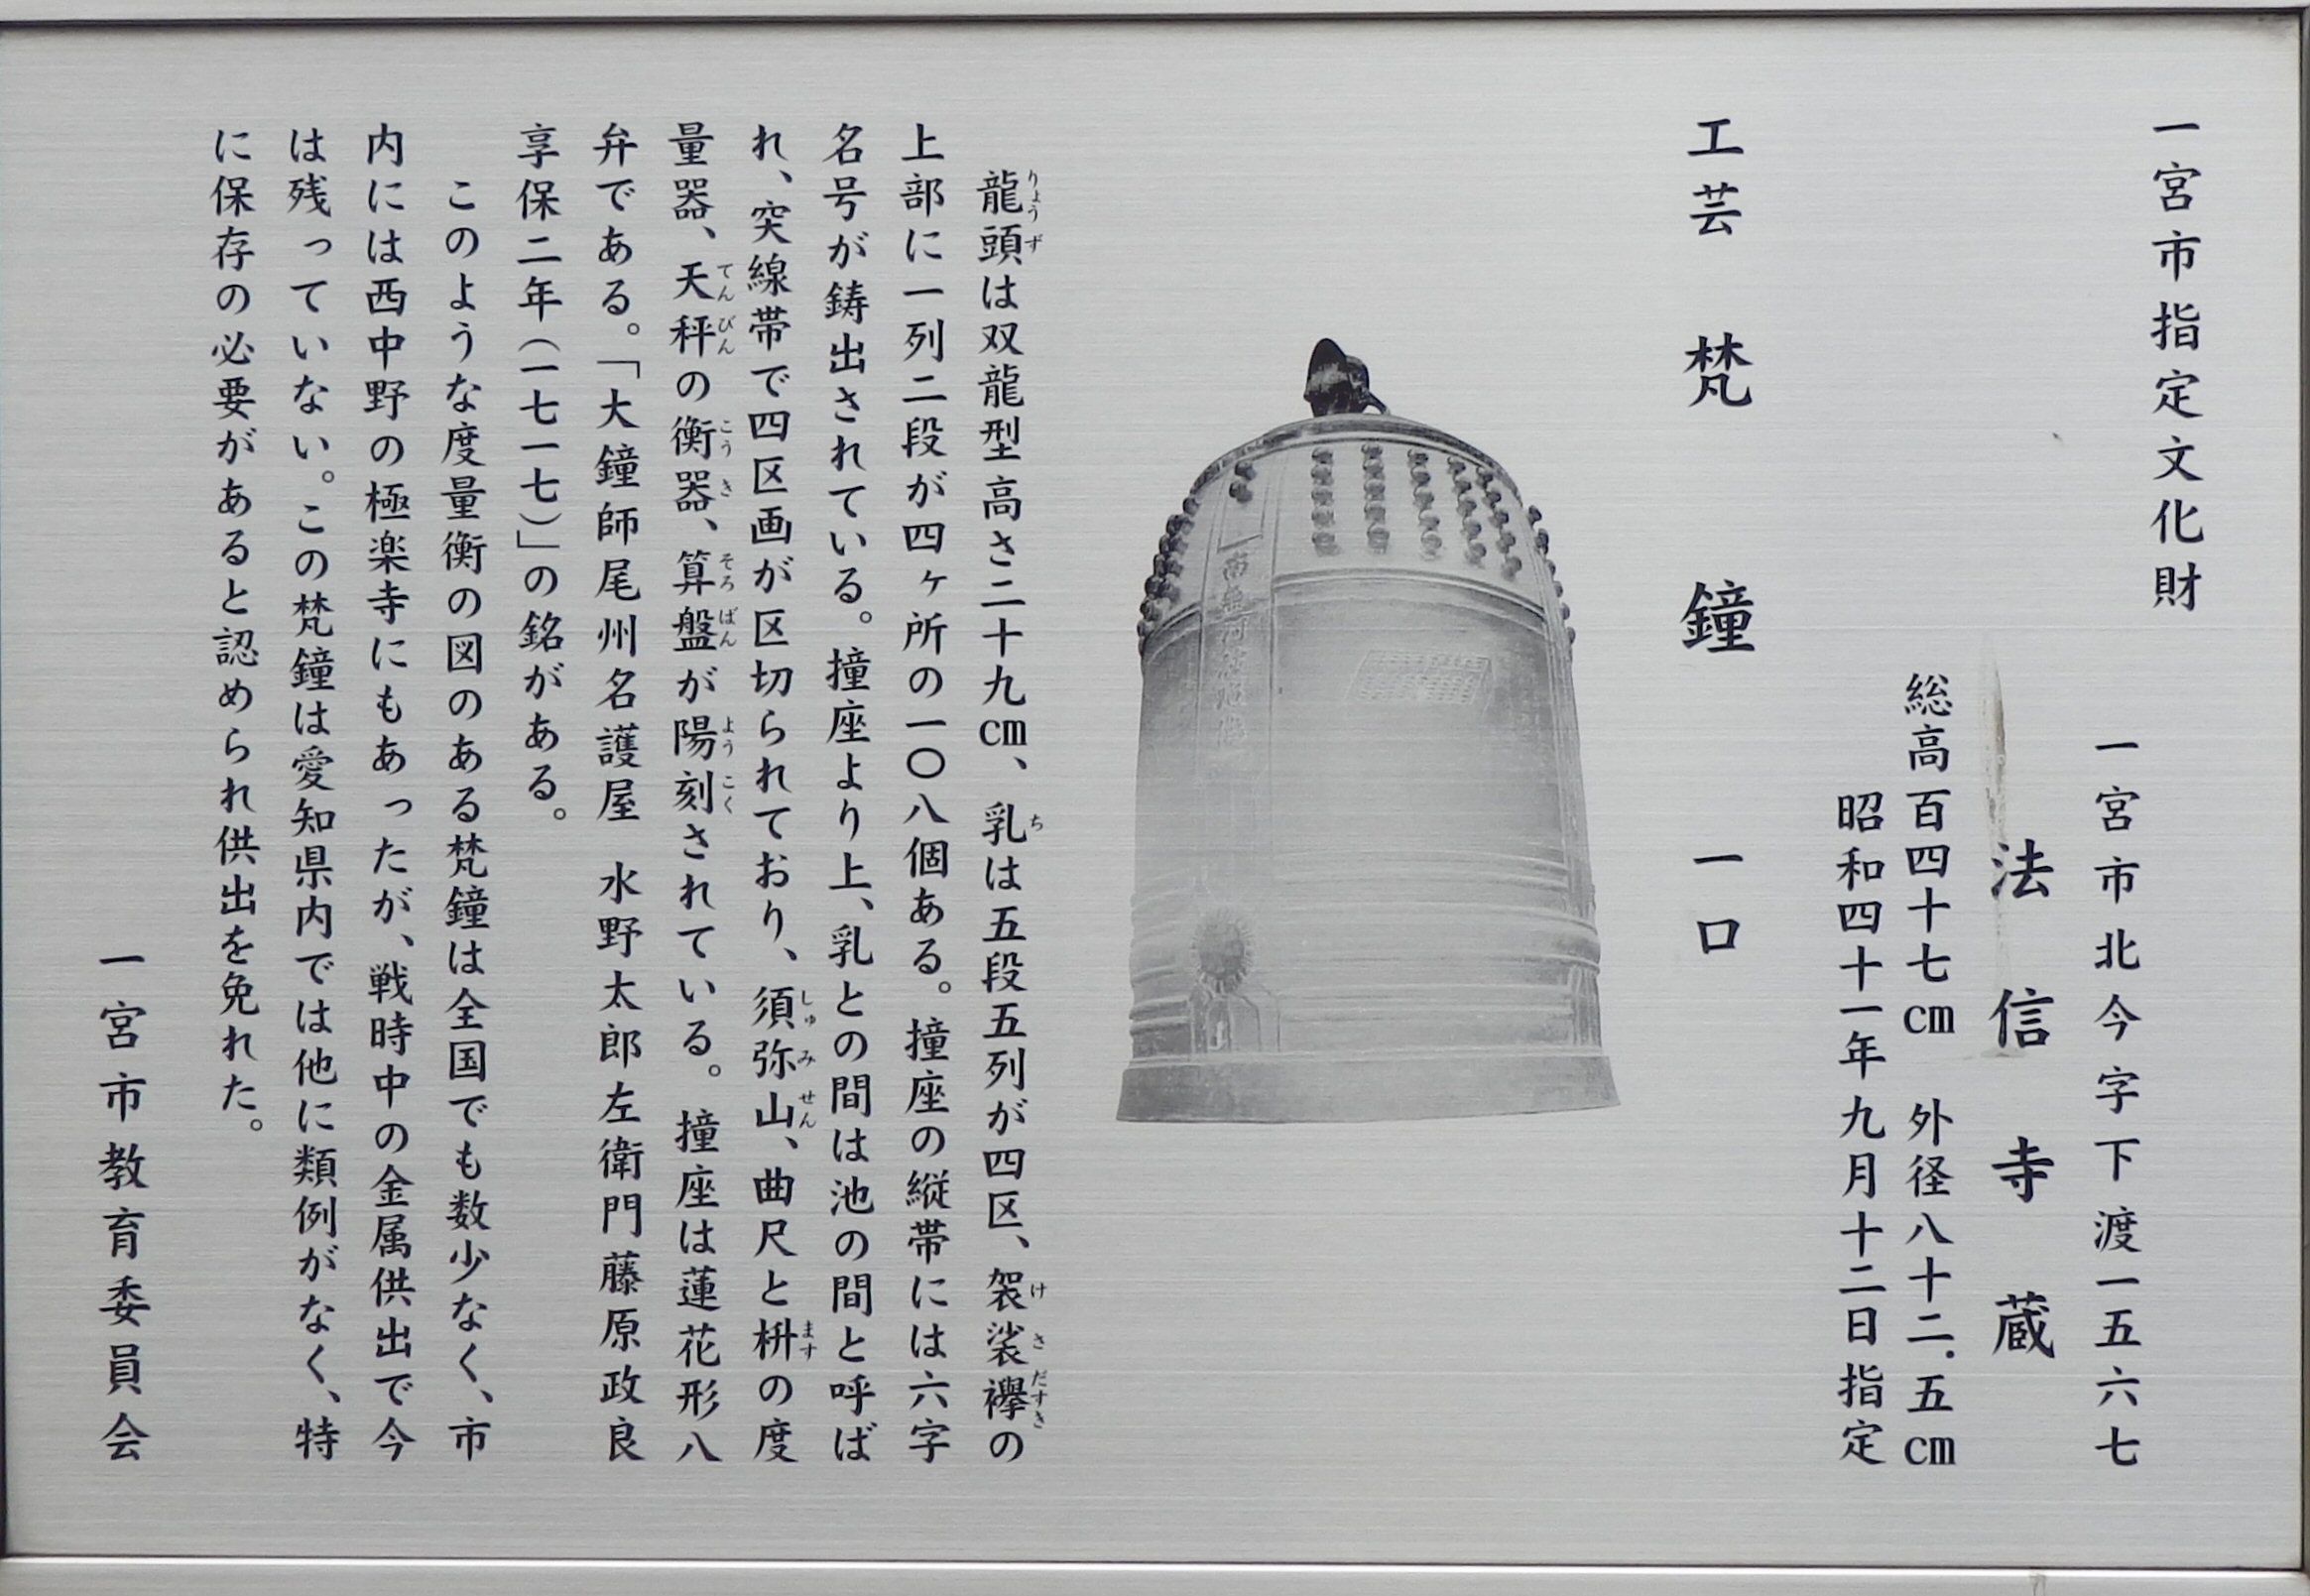 一宮市指定文化財
一宮市北今字下渡一五六七
法信寺蔵
総高百四十七cm 外径八十二.五cm
昭和四十一年九月十二日指定
工芸 梵鐘 一口
龍頭は双龍型高さ二十九cm、乳は五段五列が四区、袈裟襷の
上部に一列二段が四ヶ所の一〇八個ある。撞座の縦帯には六字
名号が鋳出されている。撞座より上、乳との間は池の間と呼ば
れ、突線帯で四区画が区切られており、須弥山、曲尺と枡の度
量器、天秤の衡器、算盤が陽刻されている。撞座は蓮花形八
弁である。「大鐘師尾州名護屋 水野太郎左衛門藤原政良
享保二年(一七一七)」の銘がある。
このような度量衡の図のある梵鐘は全国でも数少なく、市
内には西中野の極楽寺にもあったが、戦時中の金属供出で今
は残っていない。この梵鐘は愛知県内では他に類例がなく、特
に保存の必要があると認められ供出を免れた。
一宮市教育委員会
りょうず
ち
けさだすき
しゅみせん
ます
てんびん
こうき
そろばん
ようこく